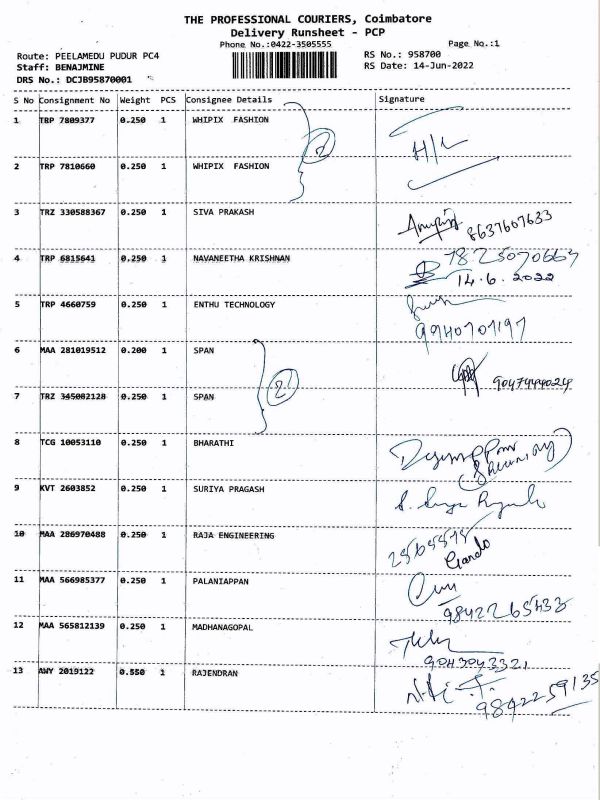 THE PROFESSIONAL COURIERS, Coimbatore
Delivery Runsheet - PCP
Phone No.:0422-3505555 Page No.:1
Route: PEELAMEDU PUDUR PC4 RS No.: 958700
Staff: BENAJMINE RS Date: 14-Jun-2022
DRS No.: DCJB95870001
S No Consignment No Weight PCS Consignee Details Signature
1 TRP 7809377 0.250 1 WHIPIX FASHION
H/L
2 TRP 7810660 0.250 1 WHIPIX FASHION
3 TRZ 330588367 0.250 1 SIVA PRAKASH
8637607633
4 TRP 6815641 0.250 1 NAVANEETHA KRISHNAN
14.6.2022
5 TRP 4660759 0.250 1 ENTHU TECHNOLOGY
9940701197
6 MAA 281019512 0.200 1 SPAN
2
7 TRZ 345082128 0.250 1 SPAN
8 TCG 10053110 0.250 1 BHARATHI
9 KVT 2603852 0.250 1 SURIYA PRAGASH
10 MAA 286970488 0.250 1 RAJA ENGINEERING
11 MAA 566985377 0.250 1 PALANIAPPAN
9842265433
12 MAA 565812139 0.250 1 MADHANAGOPAL
9043043321
13 AWY 2019122 0.550 1 RAJENDRAN
9842259135